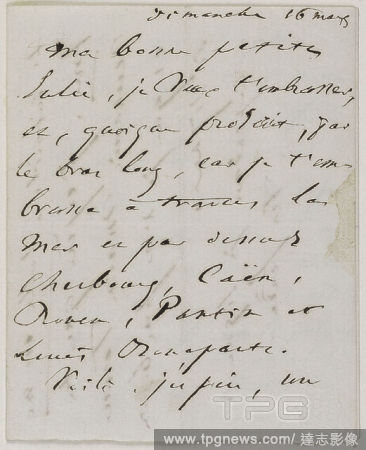 dimanche 16 mars
ma bonne petite
Julie, je veux t'embrasser,
et, quoique proscrit, j'ai
le bras long, car je t'em
brasse à travers la
mer et par dessus
Cherbourg, Caën,
Rouen, Pantin et
Louis Bonaparte.
Voilà
un
TPG
www.tpgnews.com/達志影像